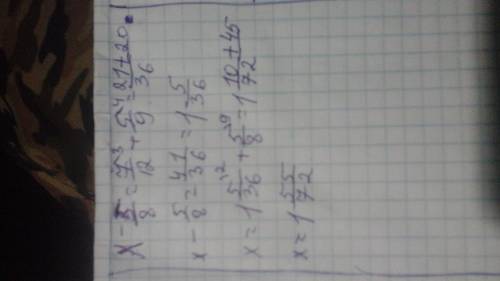 x - 5/8 = 7³/12 + 5⁴/9 = 21+20/36
x - 5/8 = 41/36 = 1 5/36
x = 1 5²/36 + 5⁹/8 = 1 10+45/72
x = 1 55/72